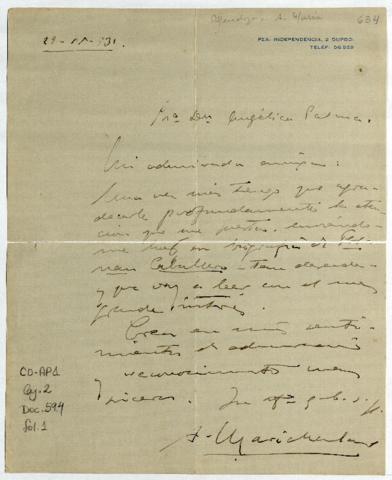 634
PZA. INDEPENDENCIA, 2 DUPDO.
TELÉF. 56929
Sra. Dña. Angélica Palma.
Mi admirada amiga:
Una vez más tengo que agra-
decerle profundamente la aten-
ción que me presta, enviándo-
me su biografía de Fer-
nán Caballero
y que voy a leer con el más
grande interés.
Crea en mis senti-
mientos de admiración
y reconocimiento muy
sinceros. Su
CD-AP1
Cj. 2
Doc. 594
fol. 1